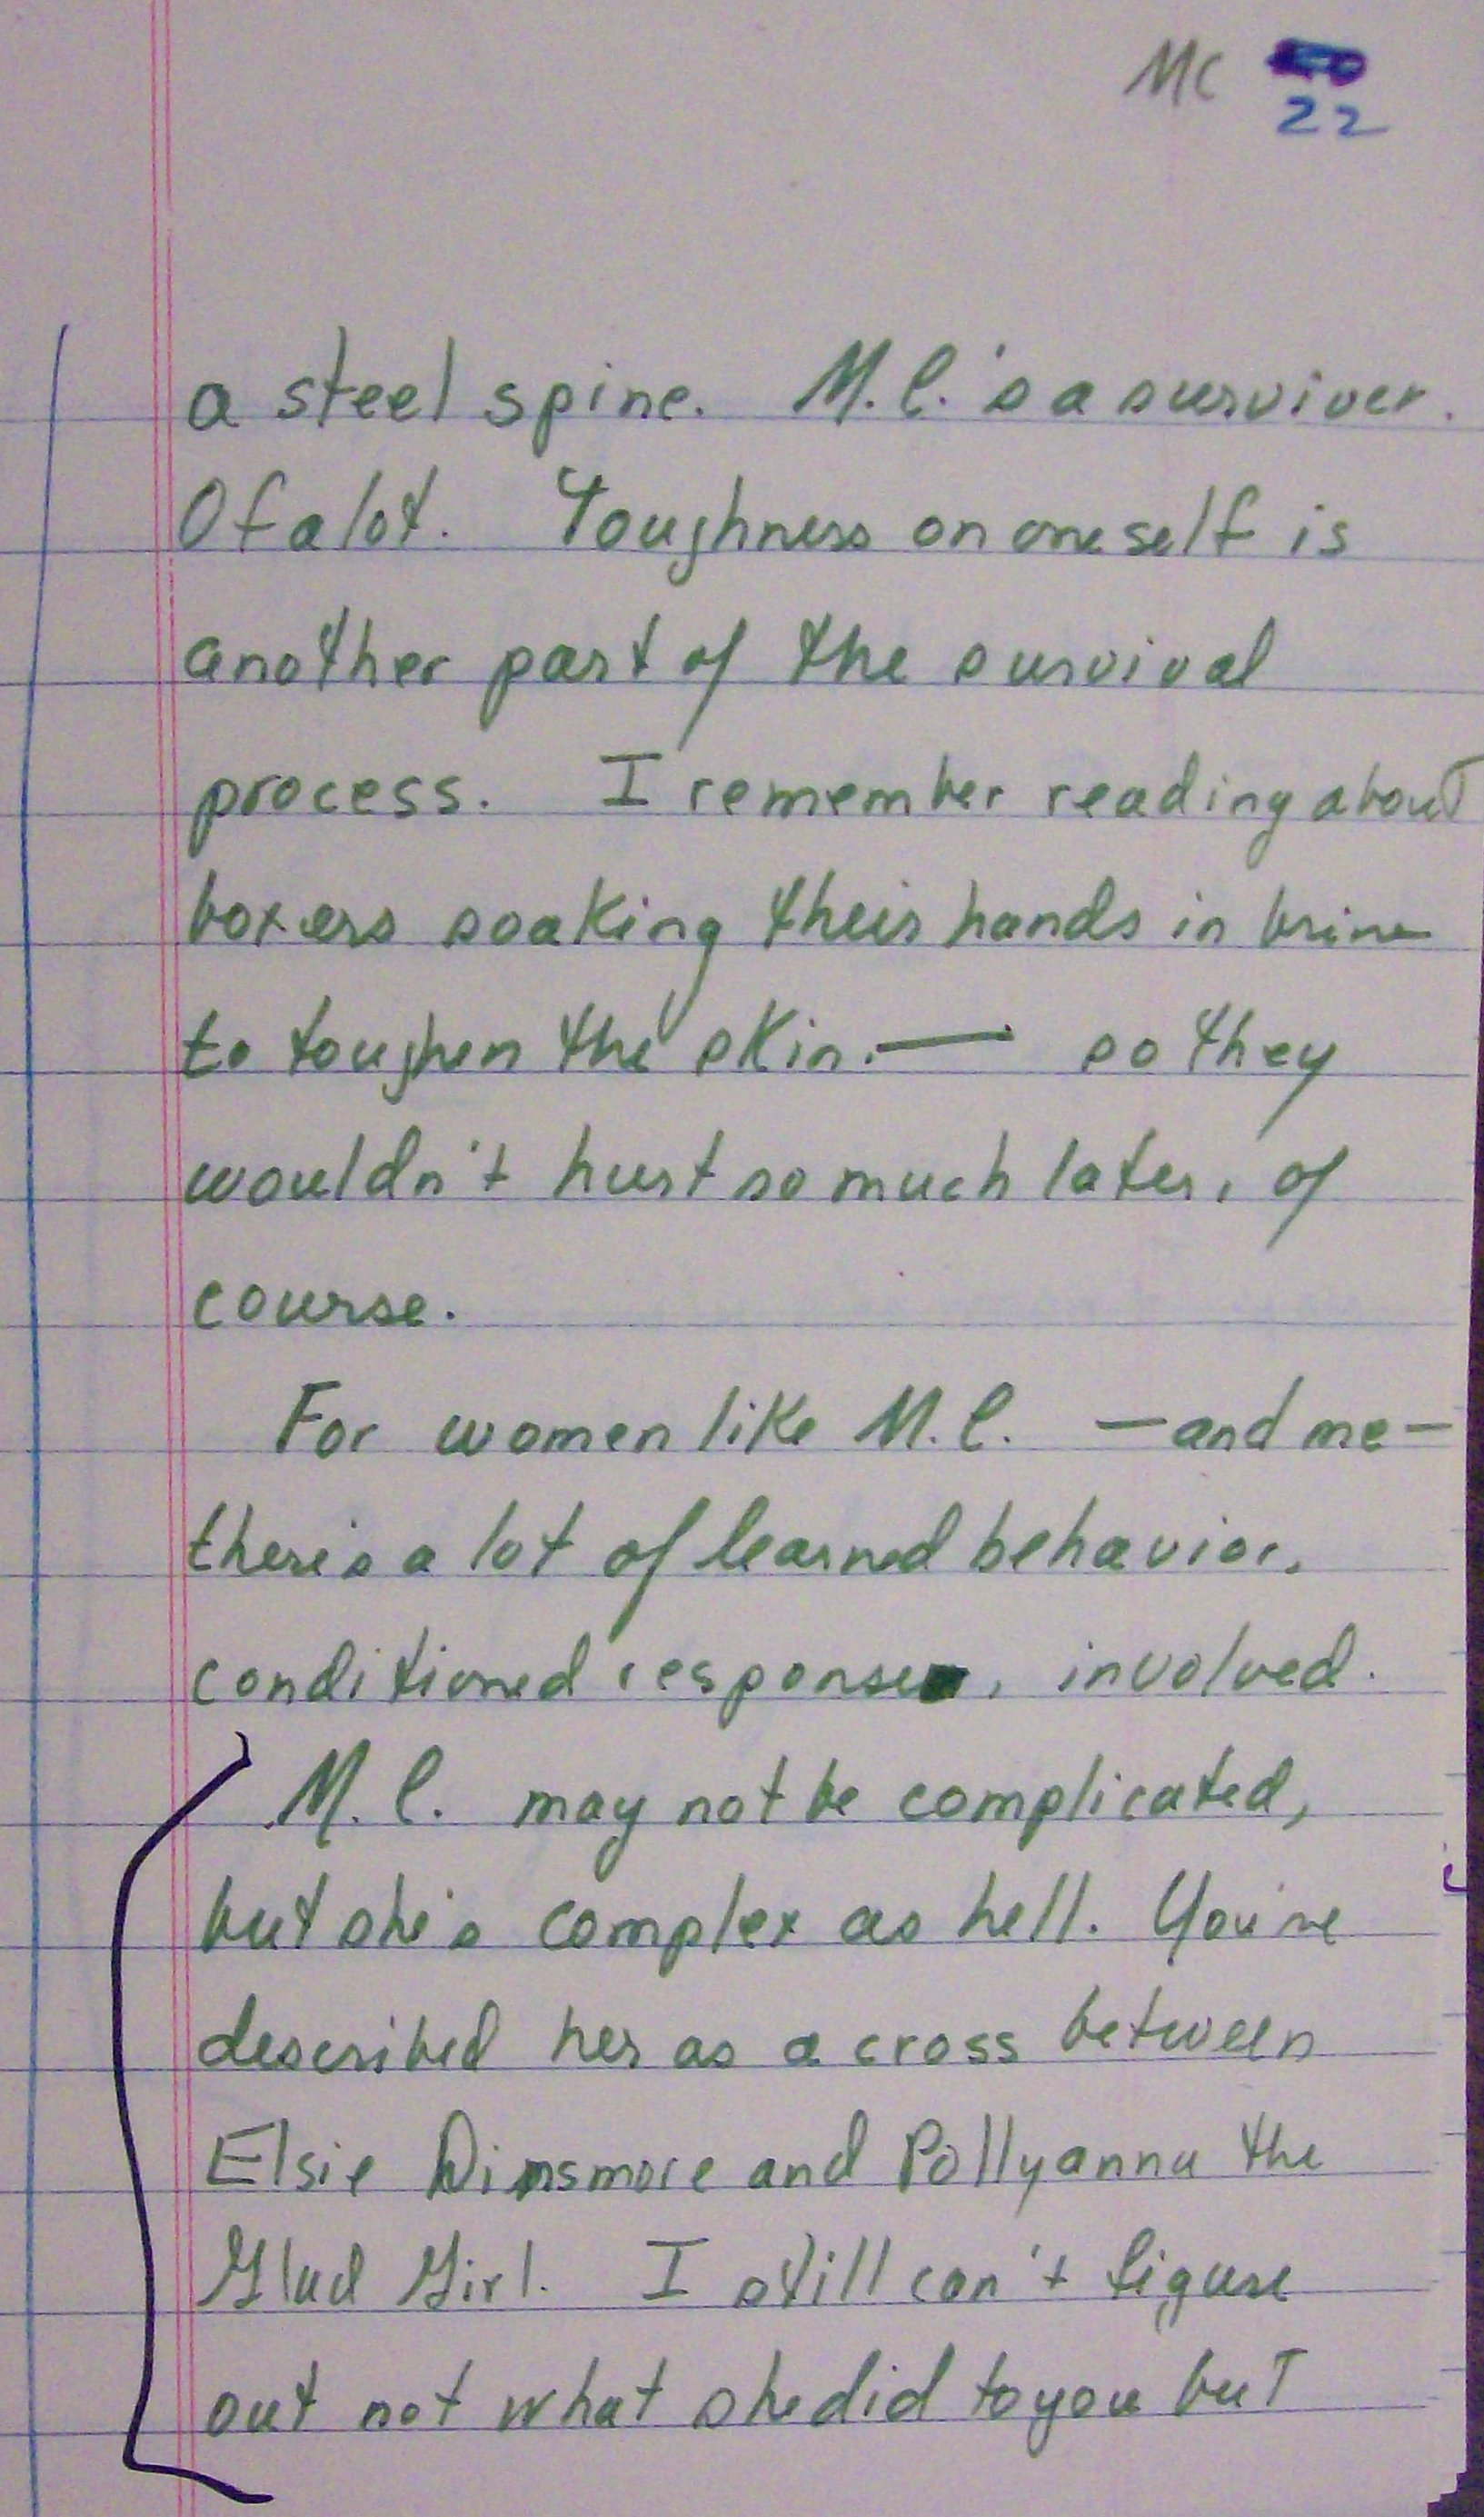 MC
22
a steel spine. M.C.'s a surviver.
Of a lot. Toughness on oneself is
another part of the survival
process. I remember reading about
boxers soaking their hands in brine
to toughen the skin. — so they
wouldn't hurt so much later, of
course.
For women like M.C. — and me —
there's a lot of learned behavior,
conditioned response, involved.
M.C. may not be complicated,
but she's complex as hell. You've
described her as a cross between
Elsie Dinsmore and Pollyanna the
Glad Girl. I still can't figure
out not what she did to you but